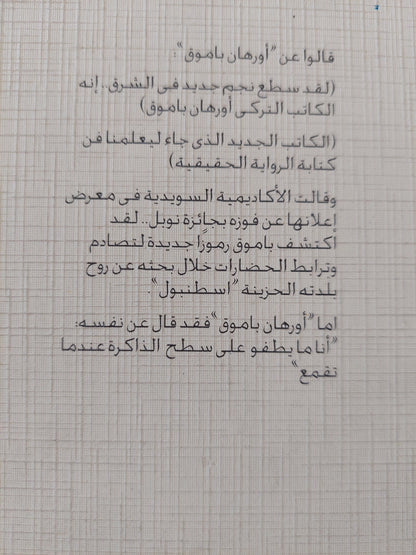 قالوا عن "أورهان باموق":
(لقد سطع نجم جديد فى الشرق.. إنه
الكاتب التركى أورهان باموق)
(الكاتب الجديد الذى جاء ليعلمنا فن
كتابة الرواية الحقيقية)
وقالت الأكاديمية السويدية فى معرض
إعلانها عن فوزه بجائزة نوبل.. لقد
اكتشف باموق رموزًا جديدة لتصادم
وترابط الحضارات خلال بحثه عن روح
بلدته الحزينة "اسطنبول".
اما "أورهان باموق" فقد قال عن نفسه:
"أنا ما يطفو على سطح الذاكرة عندما
تقمع"